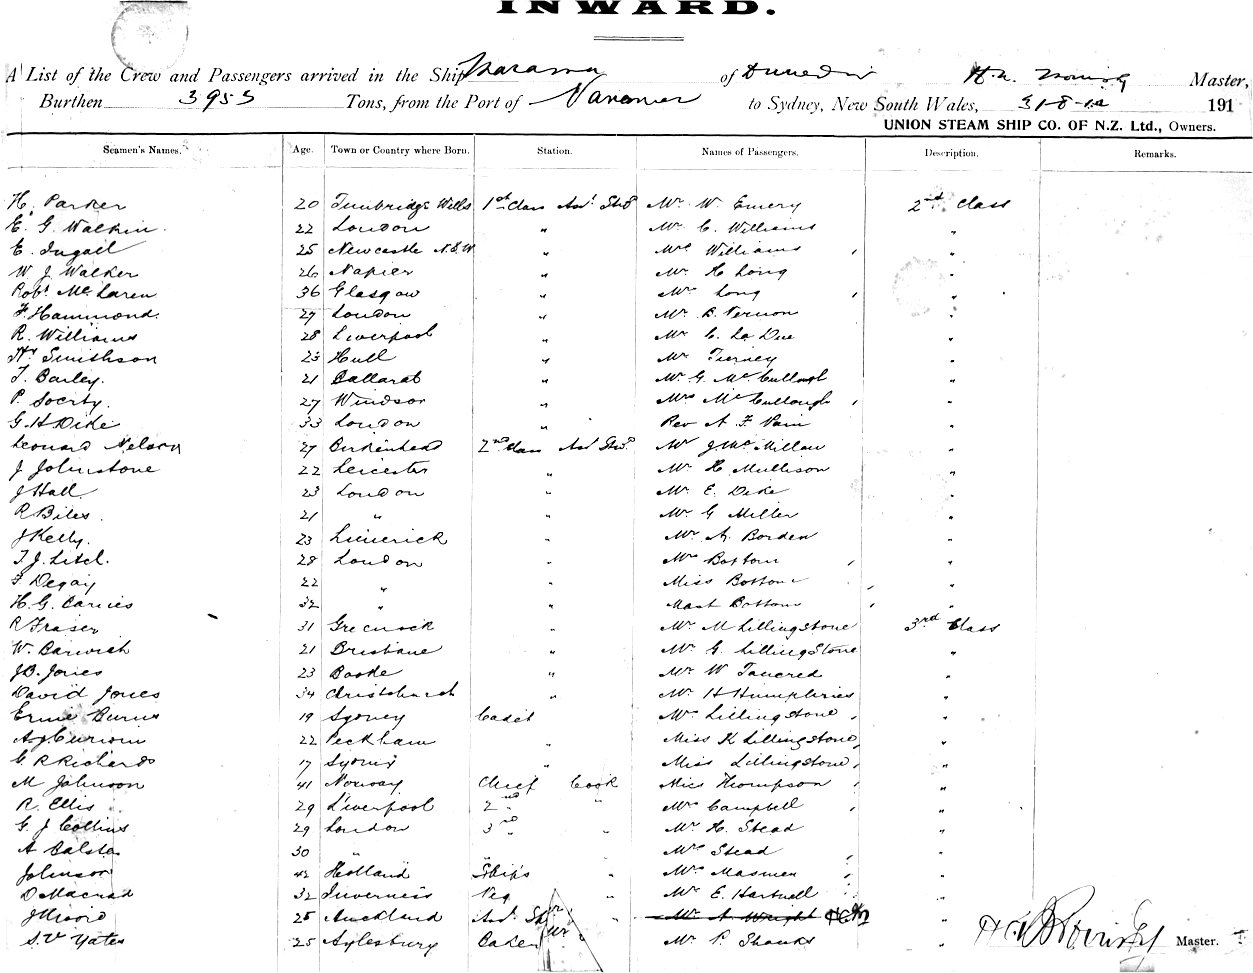 INWARD.
A List of the Crew and Passengers arrived in the Ship Marama of Dunedin Master,
Burthen 3955 Tons, from the Port of Vancouver to Sydney, New South Wales, 31-8-12 191
UNION STEAM SHIP CO. OF N.Z. Ltd., Owners.
Seamen's Names. Age. Town or Country where Born. Station. Names of Passengers. Description. Remarks.
H. Parker 20 Tunbridge Wells 1st Class Mr W Emery 2nd Class
E. G. Walkin 22 London " Mr C. Williams "
E. 25 Newcastle N.S.W " Mrs Williams "
W J Walker 26 Napier " Mr H Long "
Robt McLaren 36 Glasgow " Mrs Long "
F. Hammond 27 London " Mr B. Vernon "
R. Williams 28 Liverpool " Mr C. La Due "
Smithson 23 Hull " Tierney "
T. Barley. 21 Ballarat " Mr G. McCullough "
P. 27 Windsor " Mrs McCullough "
G H Dike 33 London " Rev A F "
Leonard Nelson 27 Birkenhead 2nd Class Mr J McMillan "
J Johnstone 22 Leicester " Mr H Mullison "
J Hall 23 London " Mr E. Dike "
R Biles 21 " " Mr G Miller "
J Kelly. 23 Limerick " Mr A. Borden "
T. J. 28 London " Mrs Bottom "
F Degay 22 " " Miss Bottom "
H. G. 32 " " Mast Bottom "
R Fraser 31 Greenock " Mr M Lillingstone 3rd Class
W. Barwick 21 Brisbane " Mr G. Lillingstone "
J B. Jones 23 " Mr W Tancred "
David Jones 34 Christchurch " Mr H Humphries "
Ernie Burns 19 Sydney Cadet Mrs Lillingstone "
A. J. 22 Peckham " Miss K Lillingstone "
G R Richards 17 Sydney " Miss Lillingstone "
M Johnson 41 Norway Chief Cook Miss Thompson "
R. Ellis 29 Liverpool 2nd " Mrs Campbell "
G. J Collins 29 London 3rd " Mr H. Stead "
A 30 " " Mrs Stead "
Johnson 42 Holland Ships " Mrs "
D Macrad 32 Inverness Veg " Mr E. Hartwell "
J Moore 25 Auckland " Mr A Wright "
S. V Yates 25 Aylesbury Baker Mr P. Shanks "
Master.